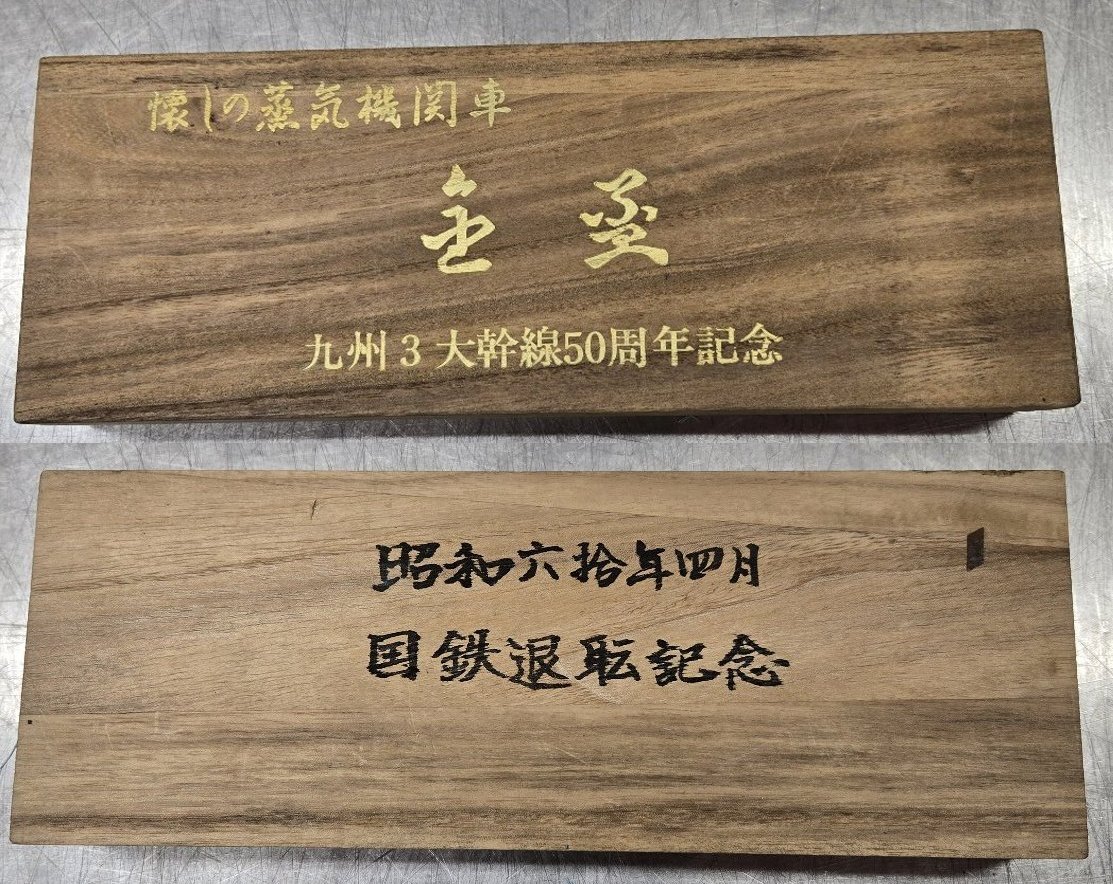 懐しの蒸気機関車
九州3大幹線50周年記念
昭和六拾年四月
国鉄退耺記念